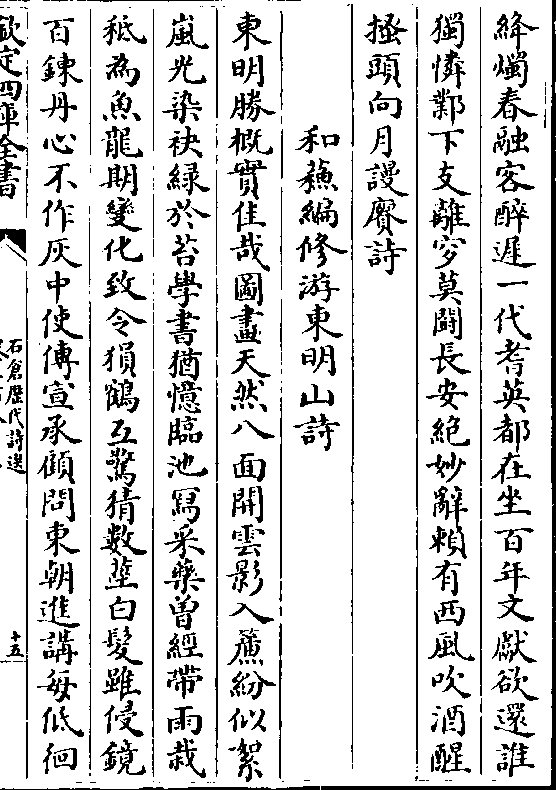 絳燭春融客醉遲一代耆英都在坐百年文獻欲還誰
獨憐鄴下支離窮莫鬪長安絶妙辭頼有西風吹酒醒
搔頭向月謾賡詩
和蘓編修游東明山詩
東明勝概實佳哉圖畫天然八面開雲影入簾紛似絮
嵐光染袂緑於苔學書猶憶臨池冩采藥曽經帶雨栽
秪為魚龍期變化致令猨鶴互驚猜數莖白髪雖侵鏡
百錬丹心不作灰中使傳宣承顧問東朝進講每低徊
欽定四庫全書
石倉歴代詩選
十五